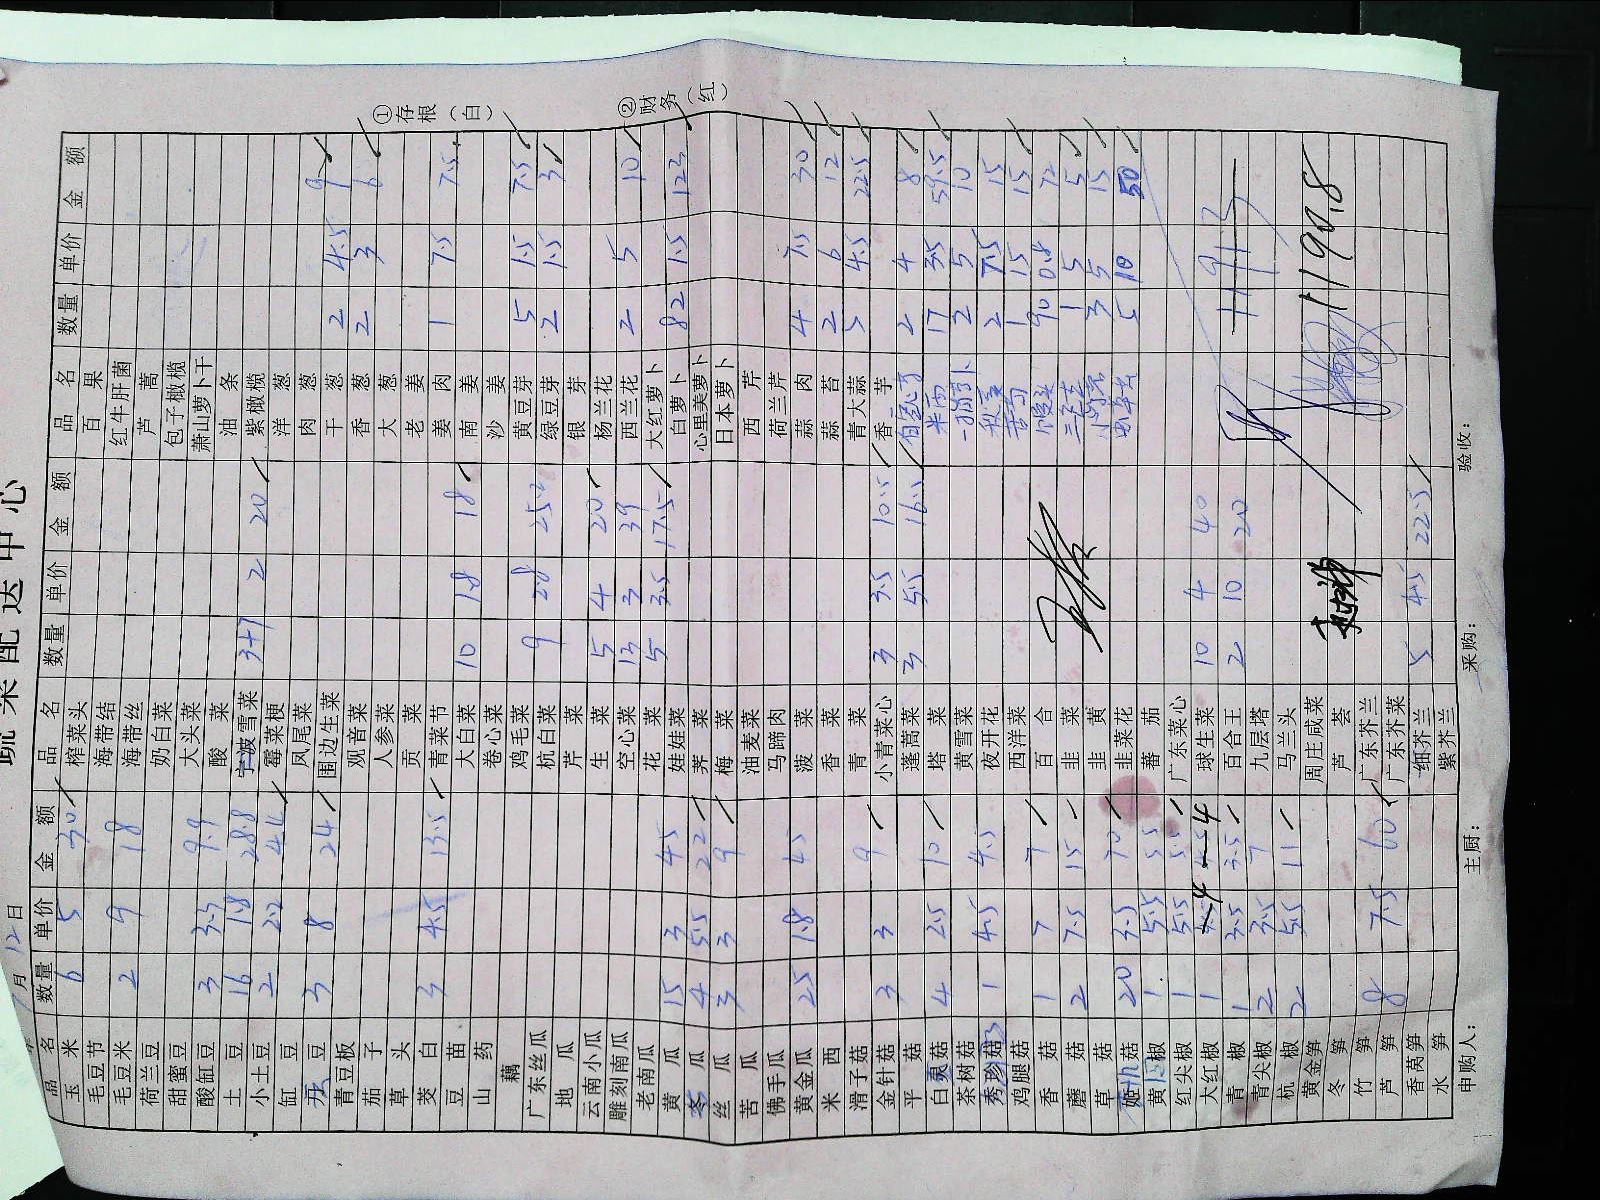 蔬菜配送中心
7月12日
品名 数量 单价 金额 品名 数量 单价 金额 品名 数量 单价 金额
玉米 6 5 30 榨菜头 百果
毛豆节 海带结 红牛肝菌
毛豆米 2 9 18 海带丝 芦蒿
荷兰豆 奶白菜 包子橄榄
甜蜜豆 大头菜 萧山萝卜干
酸缸豆 3 3.3 9.9 酸菜 油条
土豆 16 1.8 28.8 宁波雪菜 3+7 2 20 紫橄榄
小土豆 2 2.2 4.4 霉菜梗 洋葱
缸豆 凤尾菜 肉葱
豆 3 8 24 围边生菜 干葱 2 4.5 9
青豆板 观音菜 香葱 2 3 6
茄子 人参菜 大葱
草头 贡菜 老姜
茭白 3 4.5 13.5 青菜节 姜肉 1 7.5 7.5
豆苗 大白菜 10 1.8 18 南姜
山药 卷心菜 沙姜
藕 鸡毛菜 黄豆芽 5 1.5 7.5
广东丝瓜 杭白菜 9 2.8 25.2 绿豆芽 2 1.5 3
地瓜 芹菜 银芽
云南小瓜 生菜 5 4 20 杨兰花
雕刻南瓜 空心菜 13 3 39 西兰花 2 5 10
老南瓜 花菜 5 3.5 17.5 大红萝卜
黄瓜 15 3 45 娃娃菜 白萝卜 82 1.5 123
冬瓜 4 5.5 22 荠菜 心里美萝卜
丝瓜 3 3 9 梅菜 日本萝卜
苦瓜 油麦菜 西芹
佛手瓜 马蹄肉 荷兰芹
黄金瓜 25 1.8 45 菠菜 蒜肉 4 7.5 30
米西 香菜 蒜苔 2 6 12
滑子菇 青菜 青大蒜 5 4.5 22.5
金针菇 3 3 9 小青菜心 3 3.5 10.5 香芋
平菇 蓬蒿菜 3 5.5 16.5 2 4 8
白灵菇 4 2.5 10 塔菜 米苋 17 3.5 59.5
茶树菇 黄雪菜 胡萝卜 2 5 10
秀珍菇 1 4.5 4.5 夜开花 秋葵 2 7.5 15
鸡腿菇 西洋菜 1 15 15
香菇 1 7 7 百合 90 0.8 72
磨菇 2 7.5 15 韭菜 1 5 5
草菇 韭黄 3 5 15
菇 20 3.5 70 韭菜花 5 10 50
黄圆椒 1 5.5 5.5 蕃茄
红尖椒 1 5.5 5.5 广东菜心
大红椒 1 4 4 球生菜 10 4 40
青椒 1 3.5 3.5 百合王 2 10 20
青尖椒 2 3.5 7 九层塔
杭椒 2 5.5 11 马兰头
黄金笋 周庄咸菜
冬笋 芦荟 1190.8
竹笋 广东芥兰
芦笋 8 7.5 60 广东芥菜
香莴笋 细芥兰 5 4.5 22.5
水笋 紫芥兰
申购人: 主厨: 采购: 验收:
①存根（白）
②财务（红）